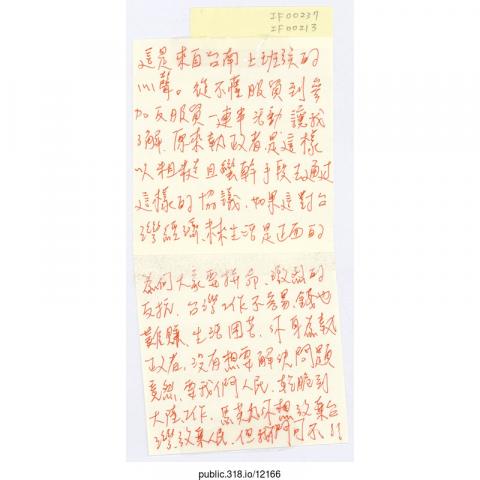 IF00237
IF00213
這是來自台南上班族的
心聲。從不懂服貿到參
加反服貿一連串活動 讓我
了解 原來執政者是這樣
以粗糙且蠻幹手段去通過
這樣的協議、如果這對台
灣經濟、未來生活是正面的
為何大家要拼命、激烈的
反抗、台灣工作不容易、錢也
難賺、生活困苦、你身為執
政者、沒有想要解決問題
竟然、要我們人民、乾脆到
大陸工作、馬英九你想放棄台
灣、放棄人民、但我們可不!!
public.318.io/12166